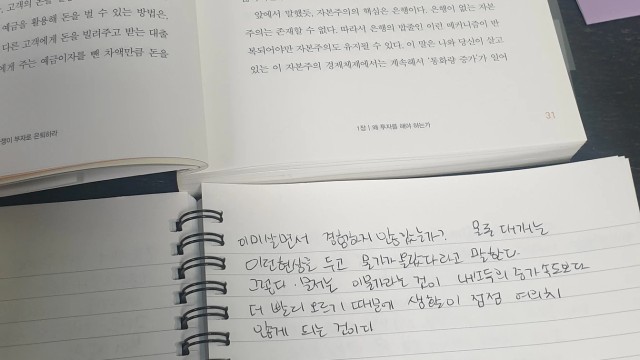 . 고객의 돈을
예금을 활용해 돈을 벌 수 있는 방법은,
다른 고객에게 돈을 빌려주고 받는 대출
에게 주는 예금이자를 뺀 차액만큼 돈을
생이 부자로 은퇴하라
앞에서 말했듯, 자본주의의 핵심은 은행이다. 은행이 없는 자본
주의는 존재할 수 없다. 따라서 은행의 발줄인 이런 메커니즘이 반
복되어야만 자본주의도 유지될 수 있다. 이 말은 나와 당신이 살고
있는 이 자본주의 경제체제에서는 계속해서 '통화량 증가'가 있어
1장 | 왜 투자를 해야 하는가
31
이미 살면서 경험하지 않았는가? 물론 대개는
이런현상을 두고 물가가 올랐다라고 말한다.
그렇다. 문제는 이물가라는 것이 내소득의 증가속도보다
더 빨리 오르기 때문에 생활이 점점 여의치
않게 되는 것이다